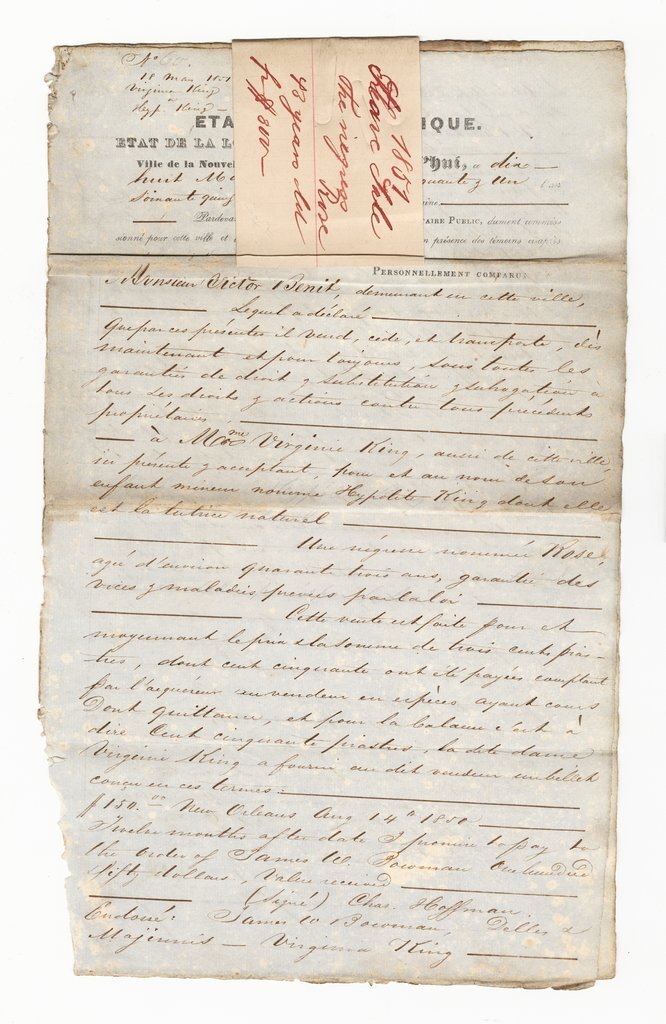 No
18 Mars 1851
Virginie King
Hypte King
1851
Slave Sale
The negress
Rose
43 years old
for $300
ETA IQUE.
ETAT DE LA L
Ville de la Nouvel 'hui, a dix
huit Ma quante & Un l'an
Soixante quin
Pardeva AIRE PUBLIC, dument commis
sionné pour cette ville et en présence des témoins ci-après
PERSONNELLEMENT COMPARU:
Monsieur Victor Benit, demeurant en cette ville,
Lequel a déclaré
que par ces présentes il vend, cède, et transporte, dès
maintenant et pour toujours, sous toutes les
garanties de droit & substitution & subrogation à
tous ses droits & actions contre tous precedents
propriétaires
à Mme Virginie King, aussi de cette ville,
ici présente & acceptant, pour et au nom de son
enfant mineur nommé Hypolite King dont elle
est la tutrice naturel
Une négresse nommée Rose,
agée d'environ quarante trois ans, garantie des
vices & maladies prevues par la loi
Cette vente est faite pour et
moyennant le prix & la somme de trois cents pias-
tres, dont cent cinquante ont été payées comptant
par l'aquéreur au vendeur en espèces ayant cours
Dont quittance, et pour la balance c'est à
dire Cent cinquante piastres, la dite dame
Virginie King a fourni au dit vendeur un billet
conçu en ces termes:
$150.00 New Orleans Aug 14th 1850
Twelve months after date I promise to pay to
the order of James W. Bowman One hundred
fifty dollars, Value received
(Signé) Chas. Hoffman
Endossé: James W Bowman, &
Virginia King